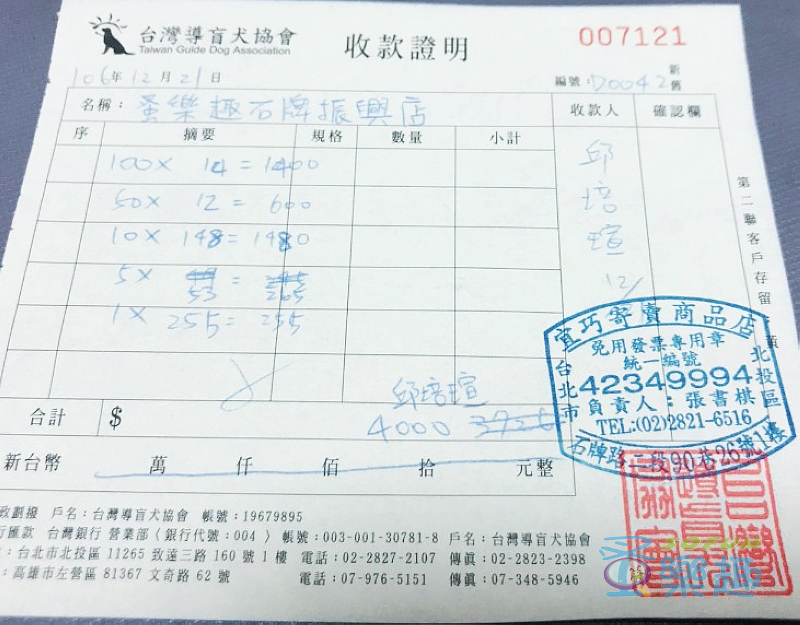 台灣導盲犬協會
Taiwan Guide Dog Association
收款證明
007121
106年12月21日
編號:D0042 新舊
名稱: 蛋樂趣石牌振興店
收款人
確認欄
序 摘要 規格 數量 小計
100× 14=1400
50× 12=600
10× 148=1480
5× 53 = 265
1× 255=255
邱培瑄
12/
第二聯客戶存留:黃
邱培瑄
合計 $ 4000 3726
新台幣 萬 仟 佰 拾 元整
宜巧寄賣商品店
免用發票專用章
統一編號
台北市 42349994 北投區
負責人:張書棋
TEL:(02)2821-6516
石牌路二段90巷26號1樓
政劃撥 戶名:台灣導盲犬協會 帳號:19679895
行匯款 台灣銀行 營業部(銀行代號:004) 帳號:003-001-30781-8 戶名:台灣導盲犬協會
:台北市北投區 11265 致遠三路 160 號 1 樓 電話:02-2827-2107 傳真:02-2823-2398
:高雄市左營區 81367 文奇路 62 號 電話:07-976-5151 傳真:07-348-5946
蛋樂趣